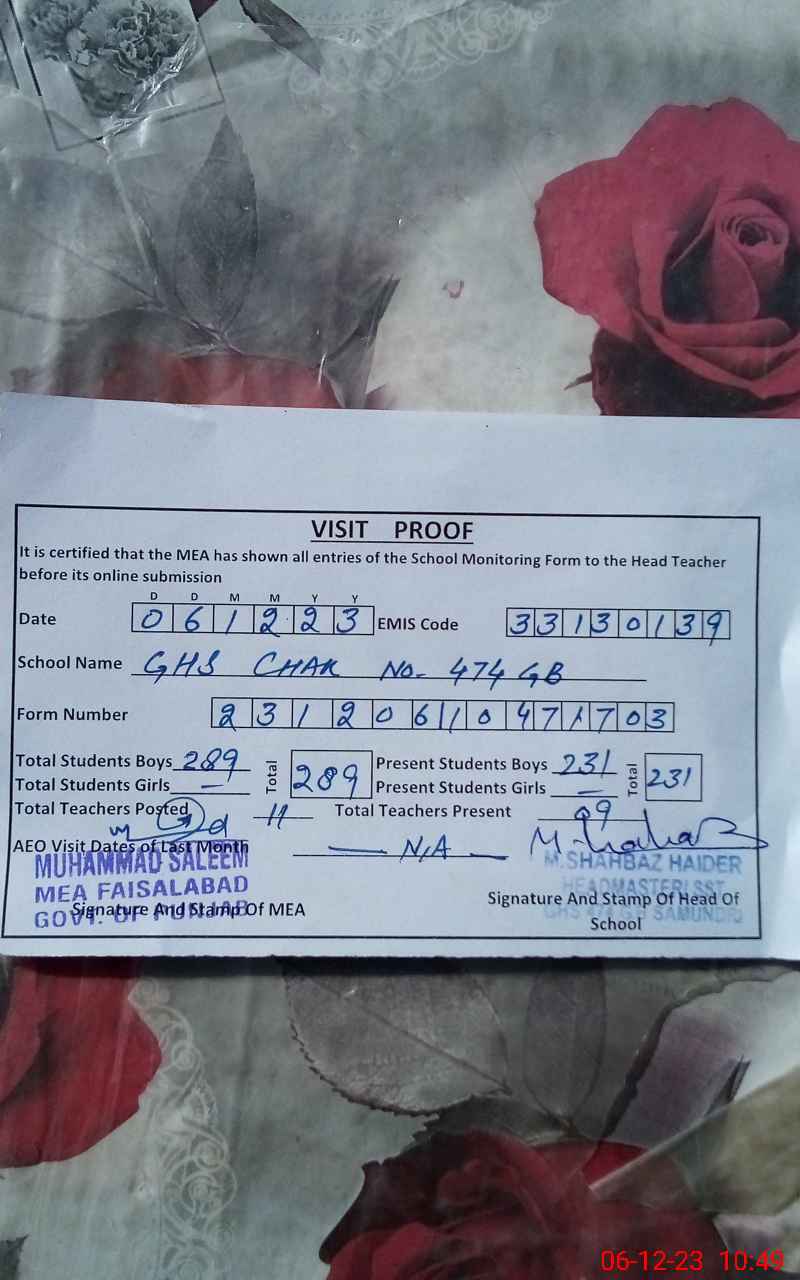 VISIT PROOF
It is certified that the MEA has shown all entries of the School Monitoring Form to the Head Teacher
before its online submission
D D M M Y Y
Date 0 6 1 2 2 3 EMIS Code 3 3 1 3 0 1 3 9
School Name GHS CHAK NO. 474 GB
Form Number 2 3 1 2 0 6 1 0 4 7 1 7 0 3
Total Students Boys 289 Total 289 Present Students Boys 231 Total 231
Total Students Girls — Present Students Girls —
Total Teachers Posted 11 Total Teachers Present 09
AEO Visit Dates of Last Month — N/A —
MUHAMMAD SALEEM
MEA FAISALABAD
GOVT. OF PUNJAB
Signature And Stamp Of MEA
M. SHAHBAZ HAIDER
HEADMASTER SST
GHS 474 GB SAMUNDRI
Signature And Stamp Of Head Of
School
06-12-23 10:49